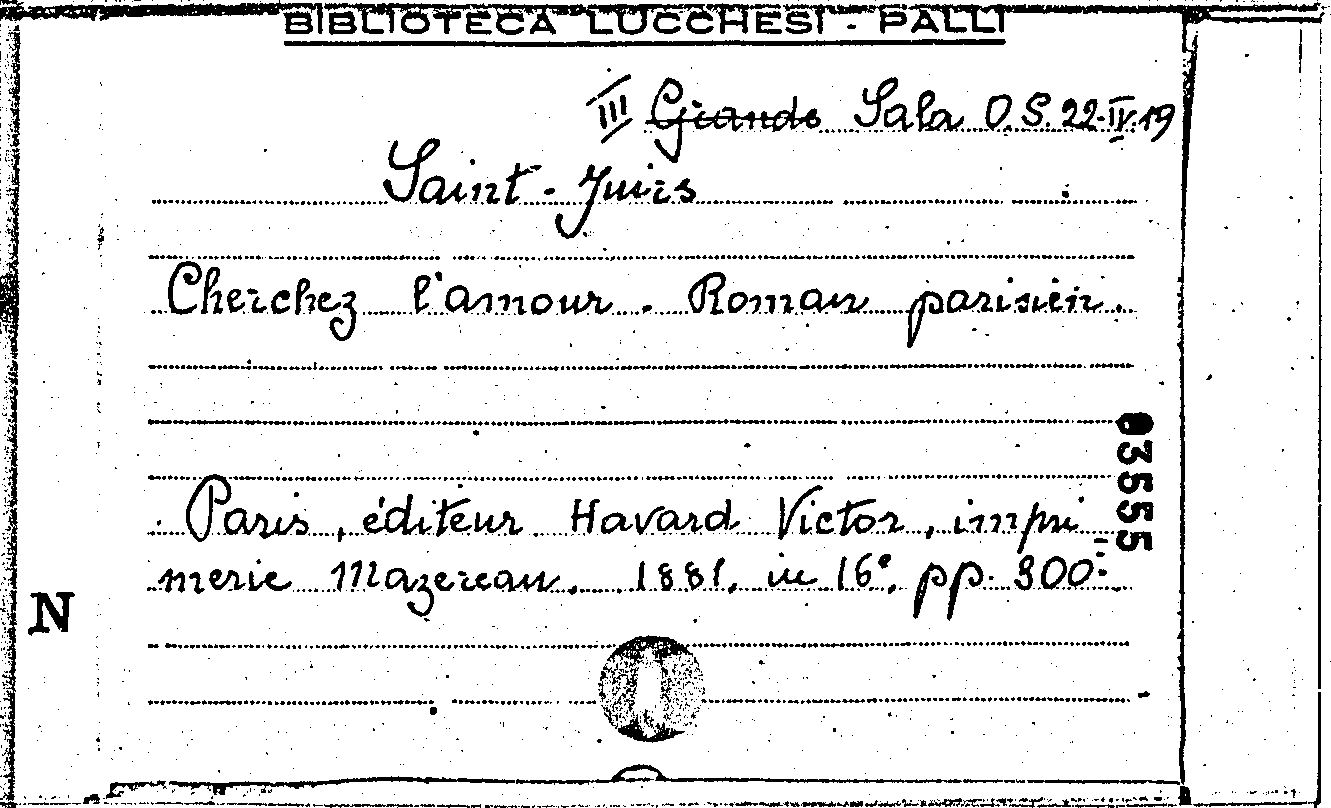 BIBLIOTECA LUCCHESI - PALLI
III Grande Sala O.S. 22-IV-19
Saint-Juirs
Cherchez l'amour. Roman parisien.
Paris, éditeur Havard Victor, impri
merie Mazereau. 1881. in 16°. pp. 300.
03555
N